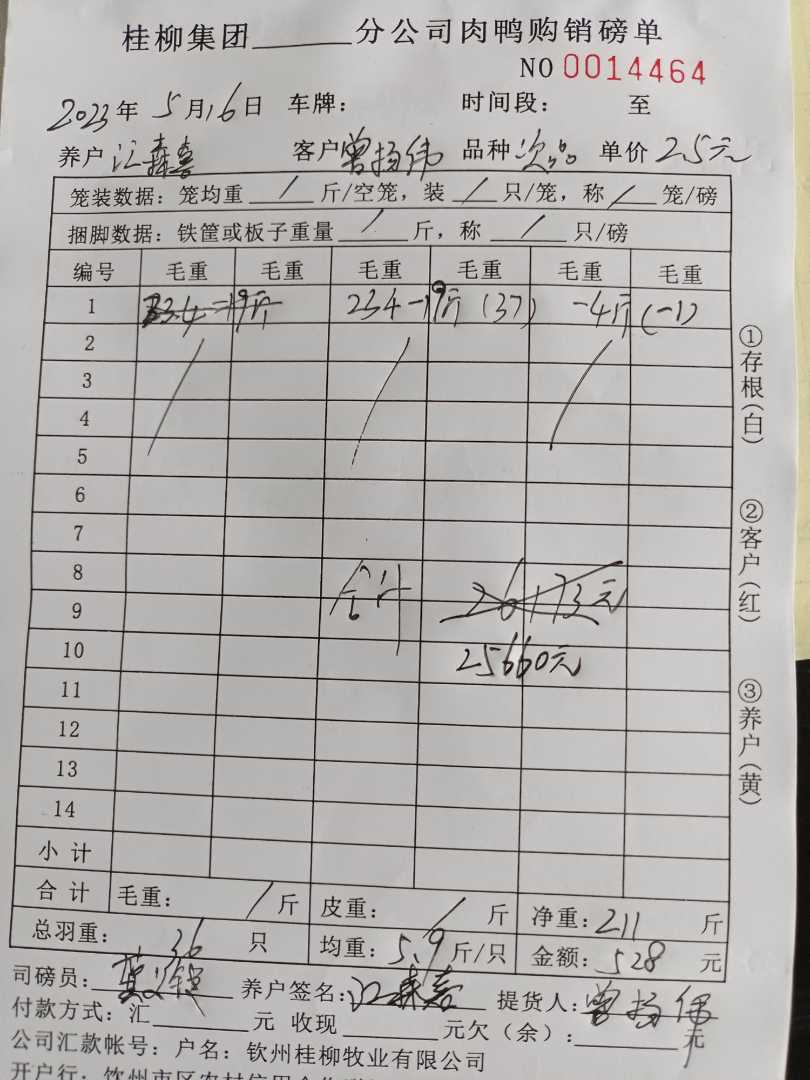 桂柳集团______分公司肉鸭购销磅单
NO 0014464
2023年 5月16日 车牌： 时间段： 至
养户 江森喜 客户 曾扬伟 品种 次品 单价 2.5元
笼装数据：笼均重 / 斤/空笼，装 / 只/笼，称 / 笼/磅
捆脚数据：铁筐或板子重量 / 斤，称 / 只/磅
编号 毛重 毛重 毛重 毛重 毛重 毛重
1 234-19斤 234-19斤 (37) -4斤 (-1)
2
3
4
5
6
7
8 合计 26173元
9
10 25660元
11
12
13
14
小计
合计 毛重： / 斤 皮重： / 斤 净重：211 斤
总羽重： 36 只 均重：5.9 斤/只 金额：528 元
司磅员： 养户签名：江森喜 提货人：曾扬伟
付款方式：汇______元 收现______元欠（余）：______元
公司汇款帐号：户名：钦州桂柳牧业有限公司
开户行：钦州市区农村信用合作
①存根（白）
②客户（红）
③养户（黄）